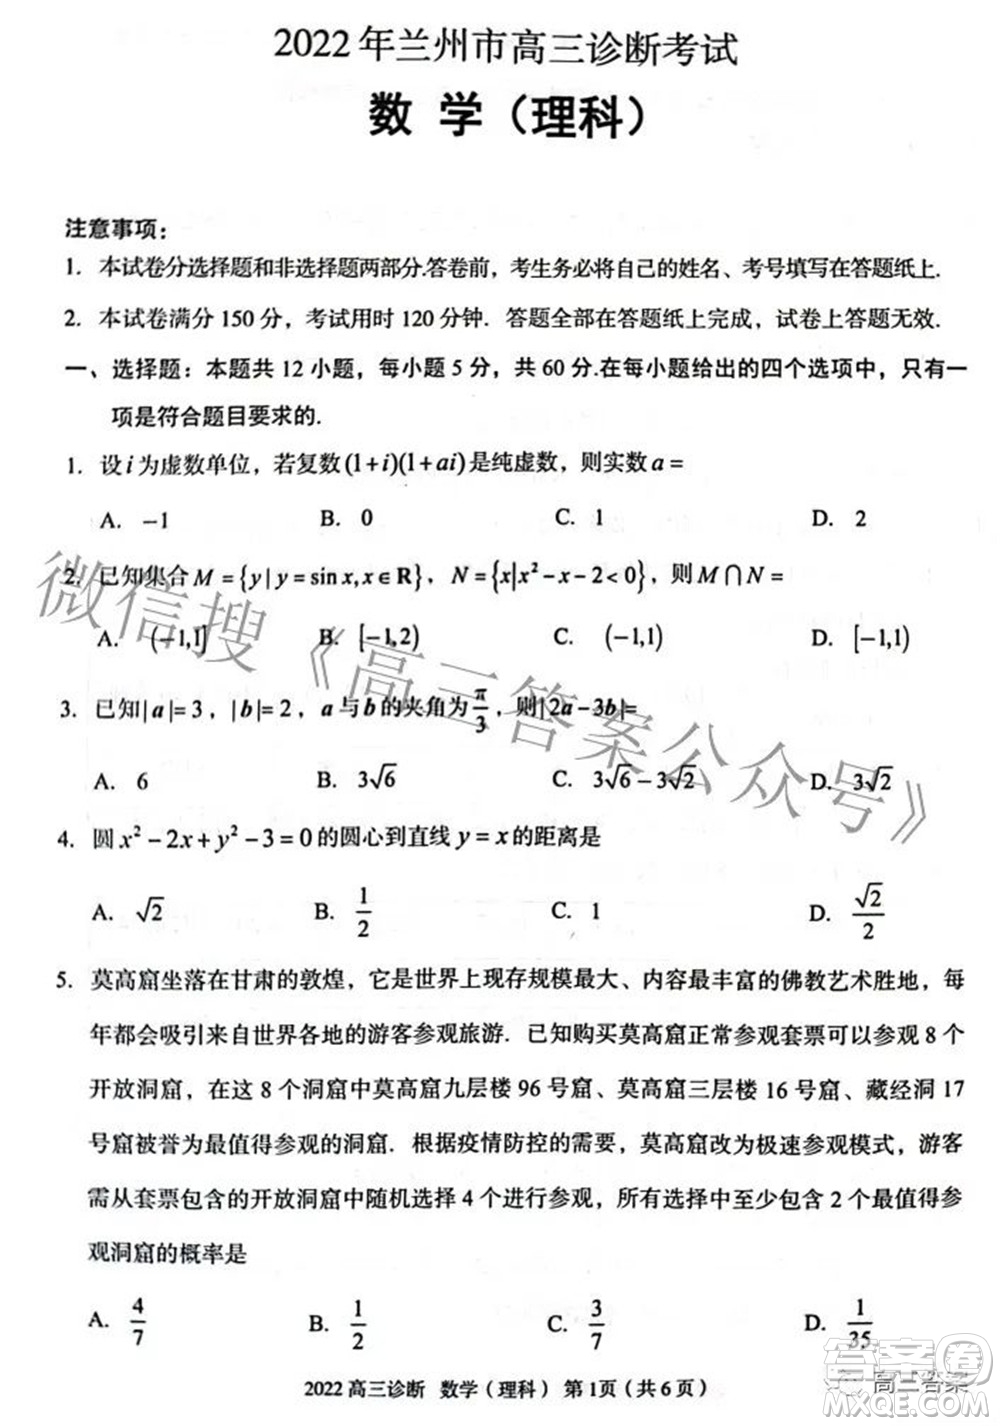 2022年兰州市高三诊断考试
数 学（理科）
注意事项：
1. 本试卷分选择题和非选择题两部分.答卷前，考生务必将自己的姓名、考号填写在答题纸上.
2. 本试卷满分 150 分，考试用时 120 分钟. 答题全部在答题纸上完成，试卷上答题无效.
一、选择题：本题共 12 小题，每小题 5 分，共 60 分.在每小题给出的四个选项中，只有一
项是符合题目要求的.
1. 设 i 为虚数单位，若复数 (1+i)(1+ai) 是纯虚数，则实数 a =
A. −1 B. 0 C. 1 D. 2
2. 已知集合 M = {y | y = sin x, x ∈ R}，N = {x|x² − x − 2 < 0}，则 M ⋂ N =
A. (−1,1] B. [−1,2) C. (−1,1) D. [−1,1)
3. 已知 |a|= 3，|b|= 2，a 与 b 的夹角为 π/3，则 |2a − 3b|=
A. 6 B. 3√6 C. 3√6 − 3√2 D. 3√2
4. 圆 x² − 2x + y² − 3 = 0 的圆心到直线 y = x 的距离是
A. √2 B. 1/2 C. 1 D. √2/2
5. 莫高窟坐落在甘肃的敦煌，它是世界上现存规模最大、内容最丰富的佛教艺术胜地，每
年都会吸引来自世界各地的游客参观旅游. 已知购买莫高窟正常参观套票可以参观 8 个
开放洞窟，在这 8 个洞窟中莫高窟九层楼 96 号窟、莫高窟三层楼 16 号窟、藏经洞 17
号窟被誉为最值得参观的洞窟. 根据疫情防控的需要，莫高窟改为极速参观模式，游客
需从套票包含的开放洞窟中随机选择 4 个进行参观，所有选择中至少包含 2 个最值得参
观洞窟的概率是
A. 4/7 B. 1/2 C. 3/7 D. 1/35
2022 高三诊断 数学（理科） 第 1页（共 6 页）
微信搜《高三答案公众号》
答案圈
高三答案